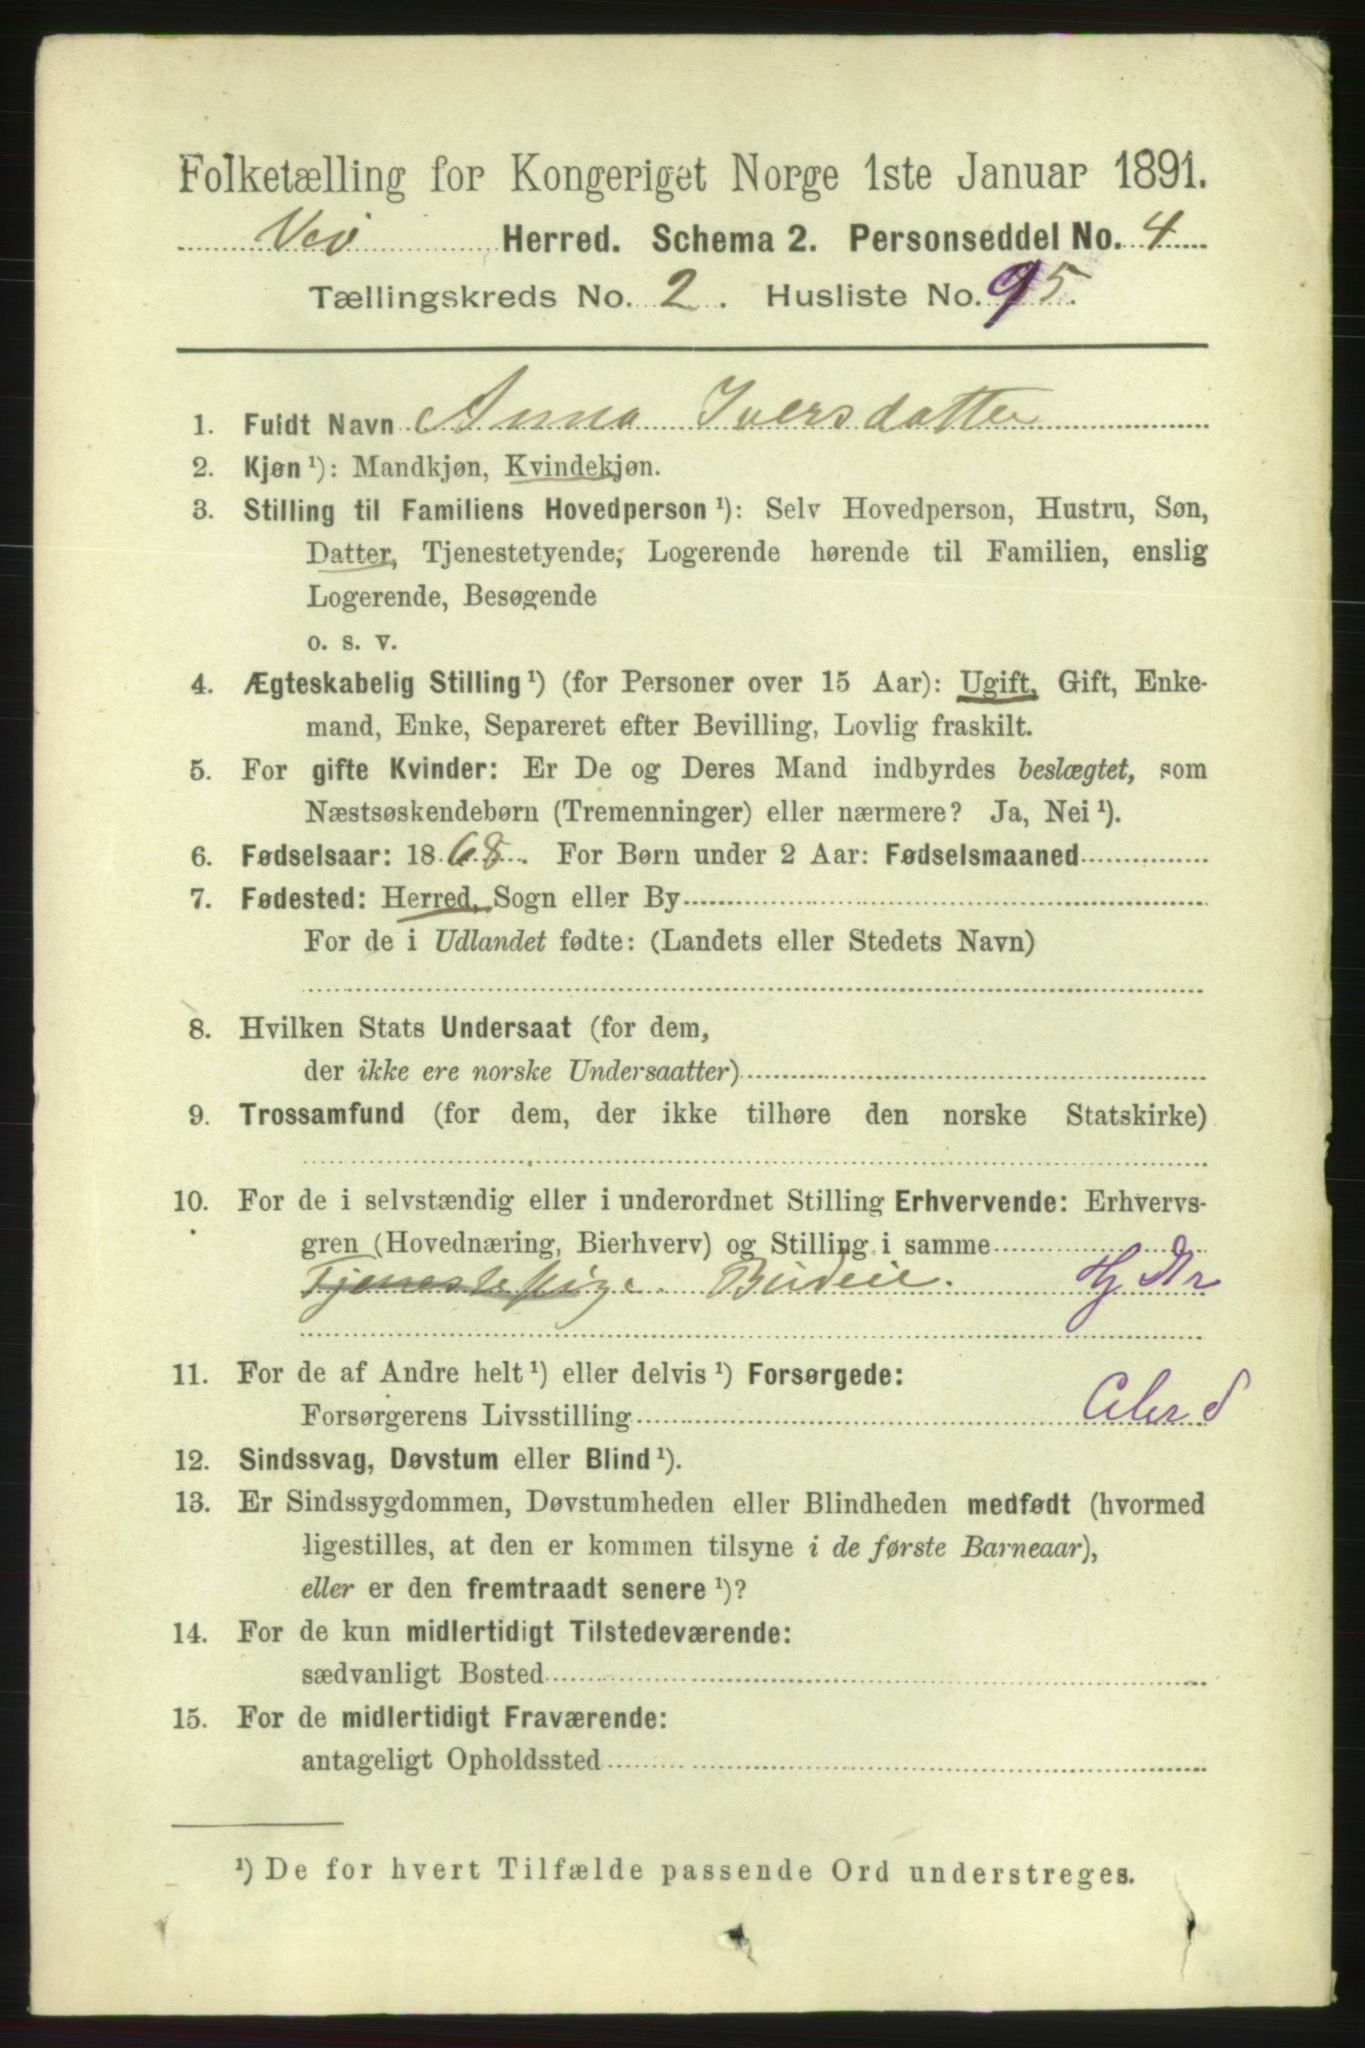 Folketælling for Kongeriget Norge 1ste Januar 1891.
Veø Herred. Schema 2. Personseddel No. 4
Tællingskreds No. 2. Husliste No. 95.
1. Fuldt Navn Anna Iversdatter
2. Kjøn ¹): Mandkjøn, Kvindekjøn.
3. Stilling til Familiens Hovedperson ¹): Selv Hovedperson, Hustru, Søn,
Datter, Tjenestetyende, Logerende hørende til Familien, enslig
Logerende, Besøgende
o. s. v.
4. Ægteskabelig Stilling ¹) (for Personer over 15 Aar): Ugift, Gift, Enke-
mand, Enke, Separeret efter Bevilling, Lovlig fraskilt.
5. For gifte Kvinder: Er De og Deres Mand indbyrdes beslægtet, som
Næstsøskendebørn (Tremenninger) eller nærmere? Ja, Nei ¹).
6. Fødselsaar: 1868. For Børn under 2 Aar: Fødselsmaaned
7. Fødested: Herred, Sogn eller By
For de i Udlandet fødte: (Landets eller Stedets Navn)
8. Hvilken Stats Undersaat (for dem,
der ikke ere norske Undersaatter)
9. Trossamfund (for dem, der ikke tilhøre den norske Statskirke)
10. For de i selvstændig eller i underordnet Stilling Erhvervende: Erhvervs-
gren (Hovednæring, Bierhverv) og Stilling i samme
Tjenestepige. Budeie. Hj
11. For de af Andre helt ¹) eller delvis ¹) Forsørgede:
Forsørgerens Livsstilling
12. Sindssvag, Døvstum eller Blind ¹).
13. Er Sindssygdommen, Døvstumheden eller Blindheden medfødt (hvormed
ligestilles, at den er kommen tilsyne i de første Barneaar),
eller er den fremtraadt senere ¹)?
14. For de kun midlertidigt Tilstedeværende:
sædvanligt Bosted
15. For de midlertidigt Fraværende:
antageligt Opholdssted
¹) De for hvert Tilfælde passende Ord understreges.